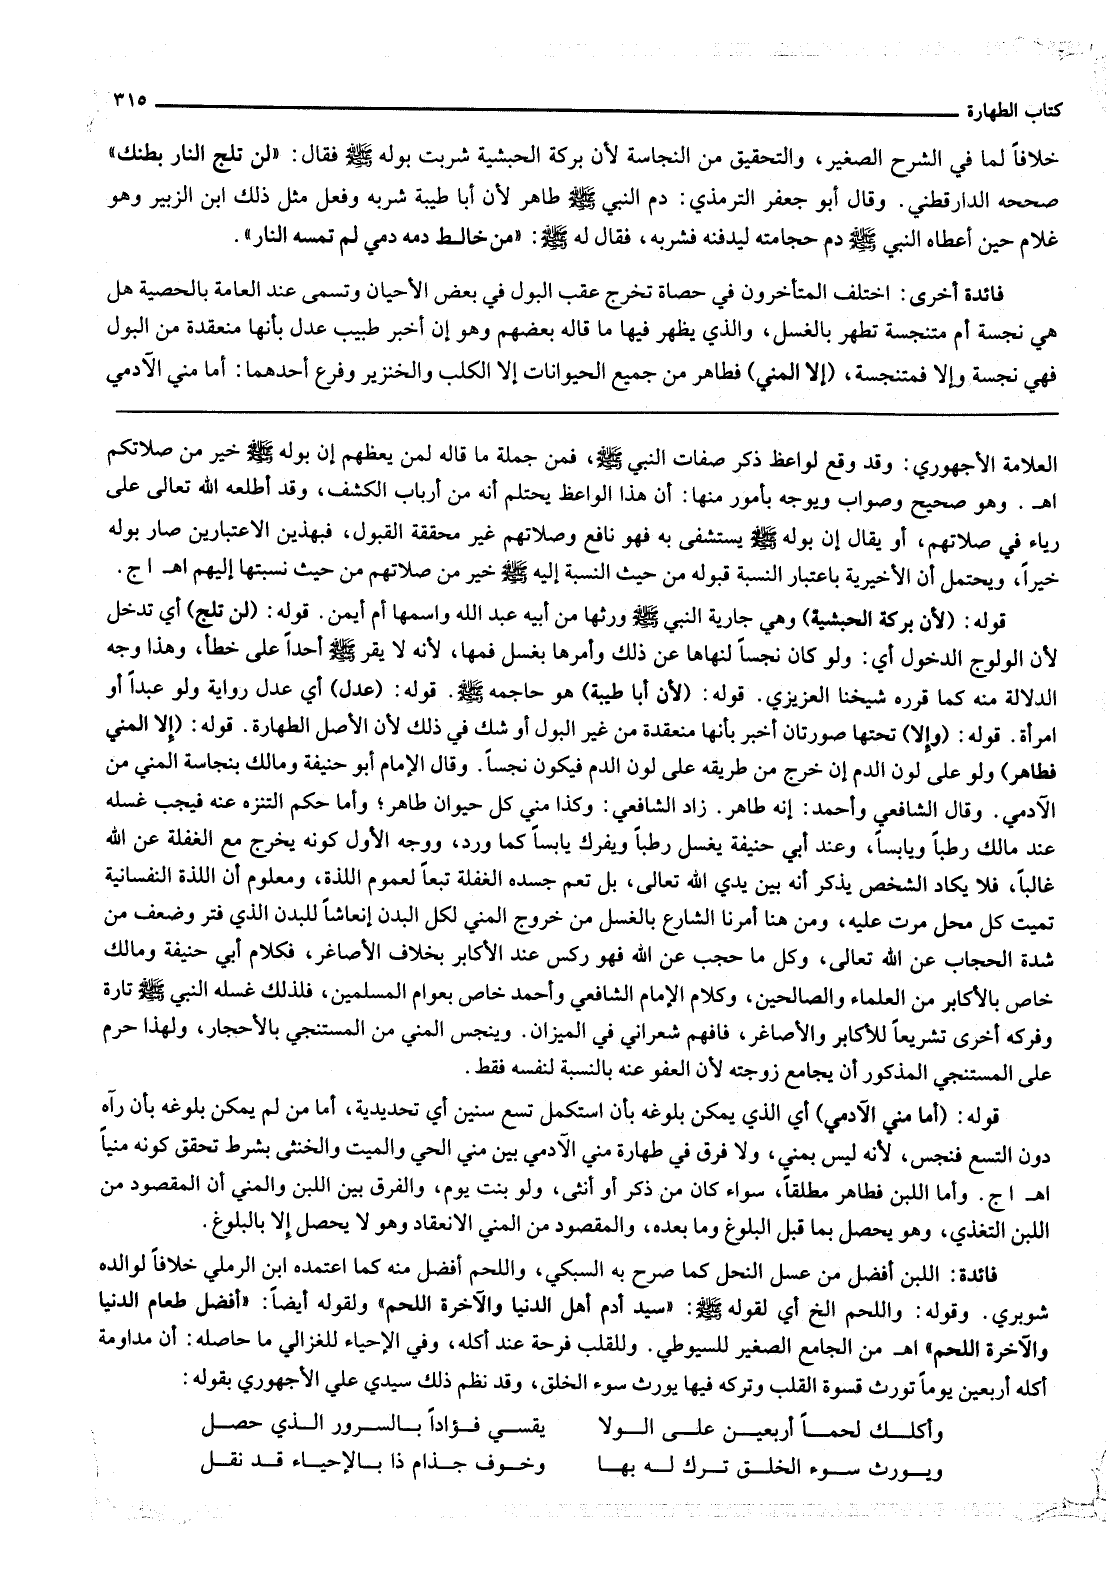 كتاب الطهارة ٣١٥
خلافاً لما في الشرح الصغير، والتحقيق من النجاسة لأن بركة الحبشية شربت بوله ﷺ فقال: «لن تلج النار بطنك»
صححه الدارقطني. وقال أبو جعفر الترمذي: دم النبي ﷺ طاهر لأن أبا طيبة شربه وفعل مثل ذلك ابن الزبير وهو
غلام حين أعطاه النبي ﷺ دم حجامته ليدفنه فشربه، فقال له ﷺ: «من خالط دمه دمي لم تمسه النار».
فائدة أخرى: اختلف المتأخرون في حصاة تخرج عقب البول في بعض الأحيان وتسمى عند العامة بالحصية هل
هي نجسة أم متنجسة تطهر بالغسل، والذي يظهر فيها ما قاله بعضهم وهو إن أخبر طبيب عدل بأنها منعقدة من البول
فهي نجسة وإلا فمتنجسة، (إلا المني) فطاهر من جميع الحيوانات إلا الكلب والخنزير وفرع أحدهما: أما مني الآدمي
العلامة الأجهوري: وقد وقع لواعظ ذكر صفات النبي ﷺ، فمن جملة ما قاله لمن يعظهم إن بوله ﷺ خير من صلاتكم
اهـ. وهو صحيح وصواب ويوجه بأمور منها: أن هذا الواعظ يحتلم أنه من أرباب الكشف، وقد أطلعه الله تعالى على
رياء في صلاتهم، أو يقال إن بوله ﷺ يستشفى به فهو نافع وصلاتهم غير محققة القبول، فبهذين الاعتبارين صار بوله
خيراً، ويحتمل أن الأخيرية باعتبار النسبة قبوله من حيث النسبة إليه ﷺ خير من صلاتهم من حيث نسبتها إليهم اهـ ا ج.
قوله: (لأن بركة الحبشية) وهي جارية النبي ﷺ ورثها من أبيه عبد الله واسمها أم أيمن. قوله: (لن تلج) أي تدخل
لأن الولوج الدخول أي: ولو كان نجساً لنهاها عن ذلك وأمرها بغسل فمها، لأنه لا يقر ﷺ أحداً على خطأ، وهذا وجه
الدلالة منه كما قرره شيخنا العزيزي. قوله: (لأن أبا طيبة) هو حاجمه ﷺ. قوله: (عدل) أي عدل رواية ولو عبداً أو
امرأة. قوله: (وإلا) تحتها صورتان أخبر بأنها منعقدة من غير البول أو شك في ذلك لأن الأصل الطهارة. قوله: (إلا المني
فطاهر) ولو على لون الدم إن خرج من طريقه على لون الدم فيكون نجساً. وقال الإمام أبو حنيفة ومالك بنجاسة المني من
الآدمي. وقال الشافعي وأحمد: إنه طاهر. زاد الشافعي: وكذا مني كل حيوان طاهر؛ وأما حكم التنزه عنه فيجب غسله
عند مالك رطباً ويابساً، وعند أبي حنيفة يغسل رطباً ويفرك يابساً كما ورد، ووجه الأول كونه يخرج مع الغفلة عن الله
غالباً، فلا يكاد الشخص يذكر أنه بين يدي الله تعالى، بل تعم جسده الغفلة تبعاً لعموم اللذة، ومعلوم أن اللذة النفسانية
تميت كل محل مرت عليه، ومن هنا أمرنا الشارع بالغسل من خروج المني لكل البدن إنعاشاً للبدن الذي فتر وضعف من
شدة الحجاب عن الله تعالى، وكل ما حجب عن الله فهو ركس عند الأكابر بخلاف الأصاغر، فكلام أبي حنيفة ومالك
خاص بالأكابر من العلماء والصالحين، وكلام الإمام الشافعي وأحمد خاص بعوام المسلمين، فلذلك غسله النبي ﷺ تارة
وفركه أخرى تشريعاً للأكابر والأصاغر، فافهم شعراني في الميزان. وينجس المني من المستنجي بالأحجار، ولهذا حرم
على المستنجي المذكور أن يجامع زوجته لأن العفو عنه بالنسبة لنفسه فقط.
قوله: (أما مني الآدمي) أي الذي يمكن بلوغه بأن استكمل تسع سنين أي تحديدية، أما من لم يمكن بلوغه بأن رآه
دون التسع فنجس، لأنه ليس بمني، ولا فرق في طهارة مني الآدمي بين مني الحي والميت والخنثى بشرط تحقق كونه منياً
اهـ ا ج. وأما اللبن فطاهر مطلقاً، سواء كان من ذكر أو أنثى، ولو بنت يوم، والفرق بين اللبن والمني أن المقصود من
اللبن التغذي، وهو يحصل بما قبل البلوغ وما بعده، والمقصود من المني الانعقاد وهو لا يحصل إلا بالبلوغ.
فائدة: اللبن أفضل من عسل النحل كما صرح به السبكي، واللحم أفضل منه كما اعتمده ابن الرملي خلافاً لوالده
شوبري. وقوله: واللحم الخ أي لقوله ﷺ: «سيد أدم أهل الدنيا والآخرة اللحم» ولقوله أيضاً: «أفضل طعام الدنيا
والآخرة اللحم» اهـ من الجامع الصغير للسيوطي. وللقلب فرحة عند أكله، وفي الإحياء للغزالي ما حاصله: أن مداومة
أكله أربعين يوماً تورث قسوة القلب وتركه فيها يورث سوء الخلق، وقد نظم ذلك سيدي علي الأجهوري بقوله:
وأكلك لحماً أربعين على الولا يقسي فؤاداً بالسرور الذي حصل
ويورث سوء الخلق ترك له بها وخوف جذام ذا بالإحياء قد نقل